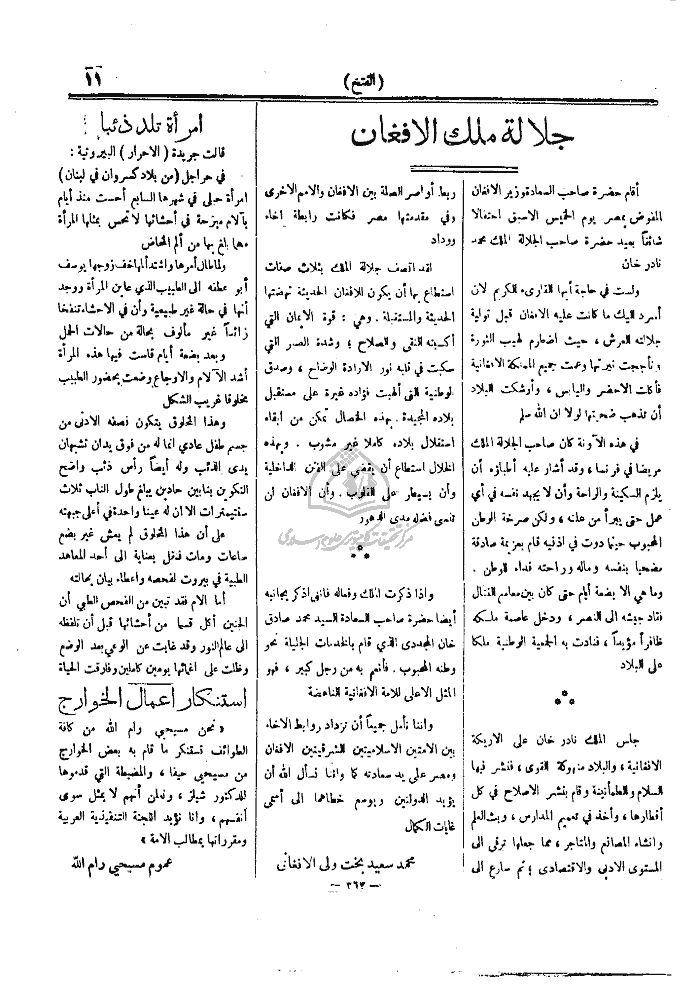 ١١
(الفتح)
جلالة ملك الافغان
أقام حضرة صاحب السعادة وزير الافغان
المفوض بمصر يوم الخميس الاسبق احتفالا
شائقاً بعيد حضرة صاحب الجلالة الملك محمد
نادر خان
ولست في حاجة أيها القارىء الكريم لان
أسرد اليك ما كانت عليه الافغان قبل تولية
جلالته العرش ، حيث اضطرم لهيب الثورة
وتأججت نيرتها وعمت جميع المملكة الافغانية
فأكلت الاخضر واليابس ، وأوشكت البلاد
أن تذهب ضحيتها لولا ان الله سلم
في هذه الآونة كان صاحب الجلالة الملك
مريضا في فرنسا ، وقد أشار عليه أطباؤه أن
يلزم السكينة والراحة وأن لا يجهد نفسه في أي
عمل حتى يبرأ من علته ، ولكن صرخة الوطن
المحبوب حينما دوت في اذنيه قام بعزيمة صادقة
مضحيا بنفسه وماله وراحته فداء للوطن .
وما هي الا بضعة أيام حتى كان بين معامع القتال
نقاد جيشه الى النصر ، ودخل عاصمة ملكه
ظافراً مؤيداً ، فنادت به الجمعية الوطنية ملكا
على البلاد
***
جلس الملك نادر خان على الاريكة
الافغانية ، والبلاد منهوكة القوى ، فنشر فيها
السلام والطمأنينة وقام بنشر الاصلاح في كل
أقطارها ، وأخذ في تعميم المدارس ، وبث العلم
وانشاء المصانع والمتاجر ، مما جعلها ترقى الى
المستوى الادبي والاقتصادى ؛ ثم سارع الى
ربط أواصر الصلة بين الافغان والامم الاخرى
وفي مقدمتها مصر فكانت رابطة اخاء
ووداد
لقد اتصف جلالة الملك بثلاث صفات
استطاع بها أن يكون للافغان الحديثة نهضتها
الحديثة والمستقبلة . وهي : قوة الايمان التي
أكسبته التقى والصلاح ؛ وشدة الصبر التي
سكبت في قلبه نور الارادة الوضاح ، وصدق
الوطنية التي ألهبت فؤاده غيرة على مستقبل
بلاده المجيدة . بهذه الخصال تمكن من ابقاء
استقلال بلاده كاملا غير مشوب . وبهذه
الخلال استطاع أن يقضي على الفتن الداخلية
وأن يسيطر على القلوب . وأن الافغان لن
تنسى فضله مدى الدهور
***
واذا ذكرت الملك وفعاله فانني اذكر بجانبه
أيضا حضرة صاحب السعادة السيد محمد صادق
خان المجددى الذي قام بالخدمات الجليلة نحو
وطنه المحبوب . فأنعم به من رجل كبير ، فهو
المثل الاعلى للامة الافغانية الناهضة
واننا نأمل جميعاً أن تزداد روابط الاخاء
بين الامتين الاسلاميتين الشرقيتين الافغان
ومصر على يد سعادته كما واننا نسأل الله أن
يؤيد الدولتين ويوسم خطاهما الى أسمى
غايات الكمال
محمد سعيد بخت ولى الافغانى
امرأة تلد ذئبا !
قالت جريدة ( الاحرار ) البيروتية :
في حراجل (من بلاد كسروان في لبنان)
امرأة حبلى في شهرها السابع أحست منذ أيام
بآلام مبرحة في أحشائها لا تحس بمثلها المرأة
مهما بلغ بها من ألم المخاض
ولما طال أمرها واشتد ألمها خف زوجها يوسف
أبو عطمه الى الطبيب الذي عاين المرأة ووجد
أنها في حالة غير طبيعية وأن في الاحشاء تنفخا
زائداً غير مألوف بحالة من حالات الحمل
وبعد بضعة أيام قاست فيها هذه المرأة
أشد الآلام والاوجاع وضعت بحضور الطبيب
مخلوقا غريب الشكل
وهذا المخلوق يتكون نصفه الادنى من
جسم طفل عادي انما له من فوق يدان تشبهان
يدى الذئب وله أيضاً رأس ذئب واضح
التكوين بنابين حادين يبلغ طول الناب ثلاث
سنتيمترات الا ان له عينا واحدة في أعلى جبهته
على أن هذا المخلوق لم يعش غير بضع
ساعات ومات فنقل بعناية الى أحد المعاهد
الطبية في بيروت لفحصه واعطاء بيان بحالته
أما الام فقد تبين من الفحص الطبي أن
الجنين أكل قسما من أحشائها قبل أن تلفظه
الى عالم النور وقد غابت عن الوعي بعد الوضع
وظلت على اغمائها يومين كاملين وفارقت الحياة
استنكار أعمال الخوارج
« نحن مسيحيي رام الله من كافة
الطوائف نستنكر ما قام به بعض الخوارج
من مسيحيي حيفا ، والمضبطة التي قدموها
للدكتور شيلز ، ونعلن أنهم لا يمثل سوى
أنفسهم ، وانا نؤيد اللجنة التنفيذية العربية
ومقرراتها بمطالب الامة »
عموم مسيحيي رام الله
— ٣٦٣ —